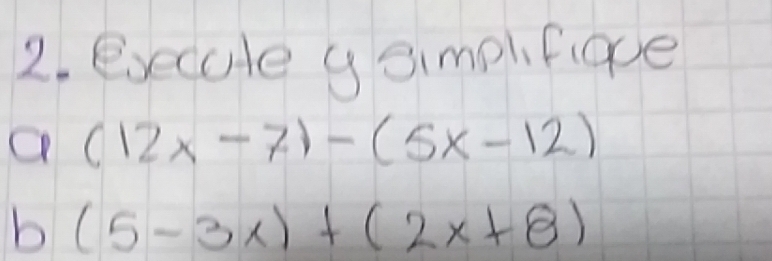 2. Ejecute y simplifique
a (12x - 7) - (5x - 12)
b (5 - 3x) + (2x + 8)